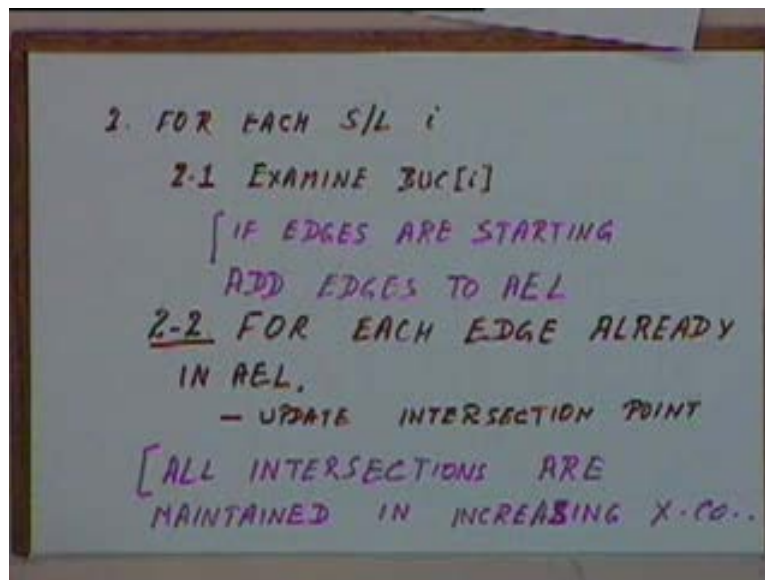 2. FOR EACH S/L i
2.1 EXAMINE BUC[i]
[IF EDGES ARE STARTING
ADD EDGES TO AEL
2-2 FOR EACH EDGE ALREADY
IN AEL.
- UPDATE INTERSECTION POINT
[ALL INTERSECTIONS ARE
MAINTAINED IN INCREASING X-CO..